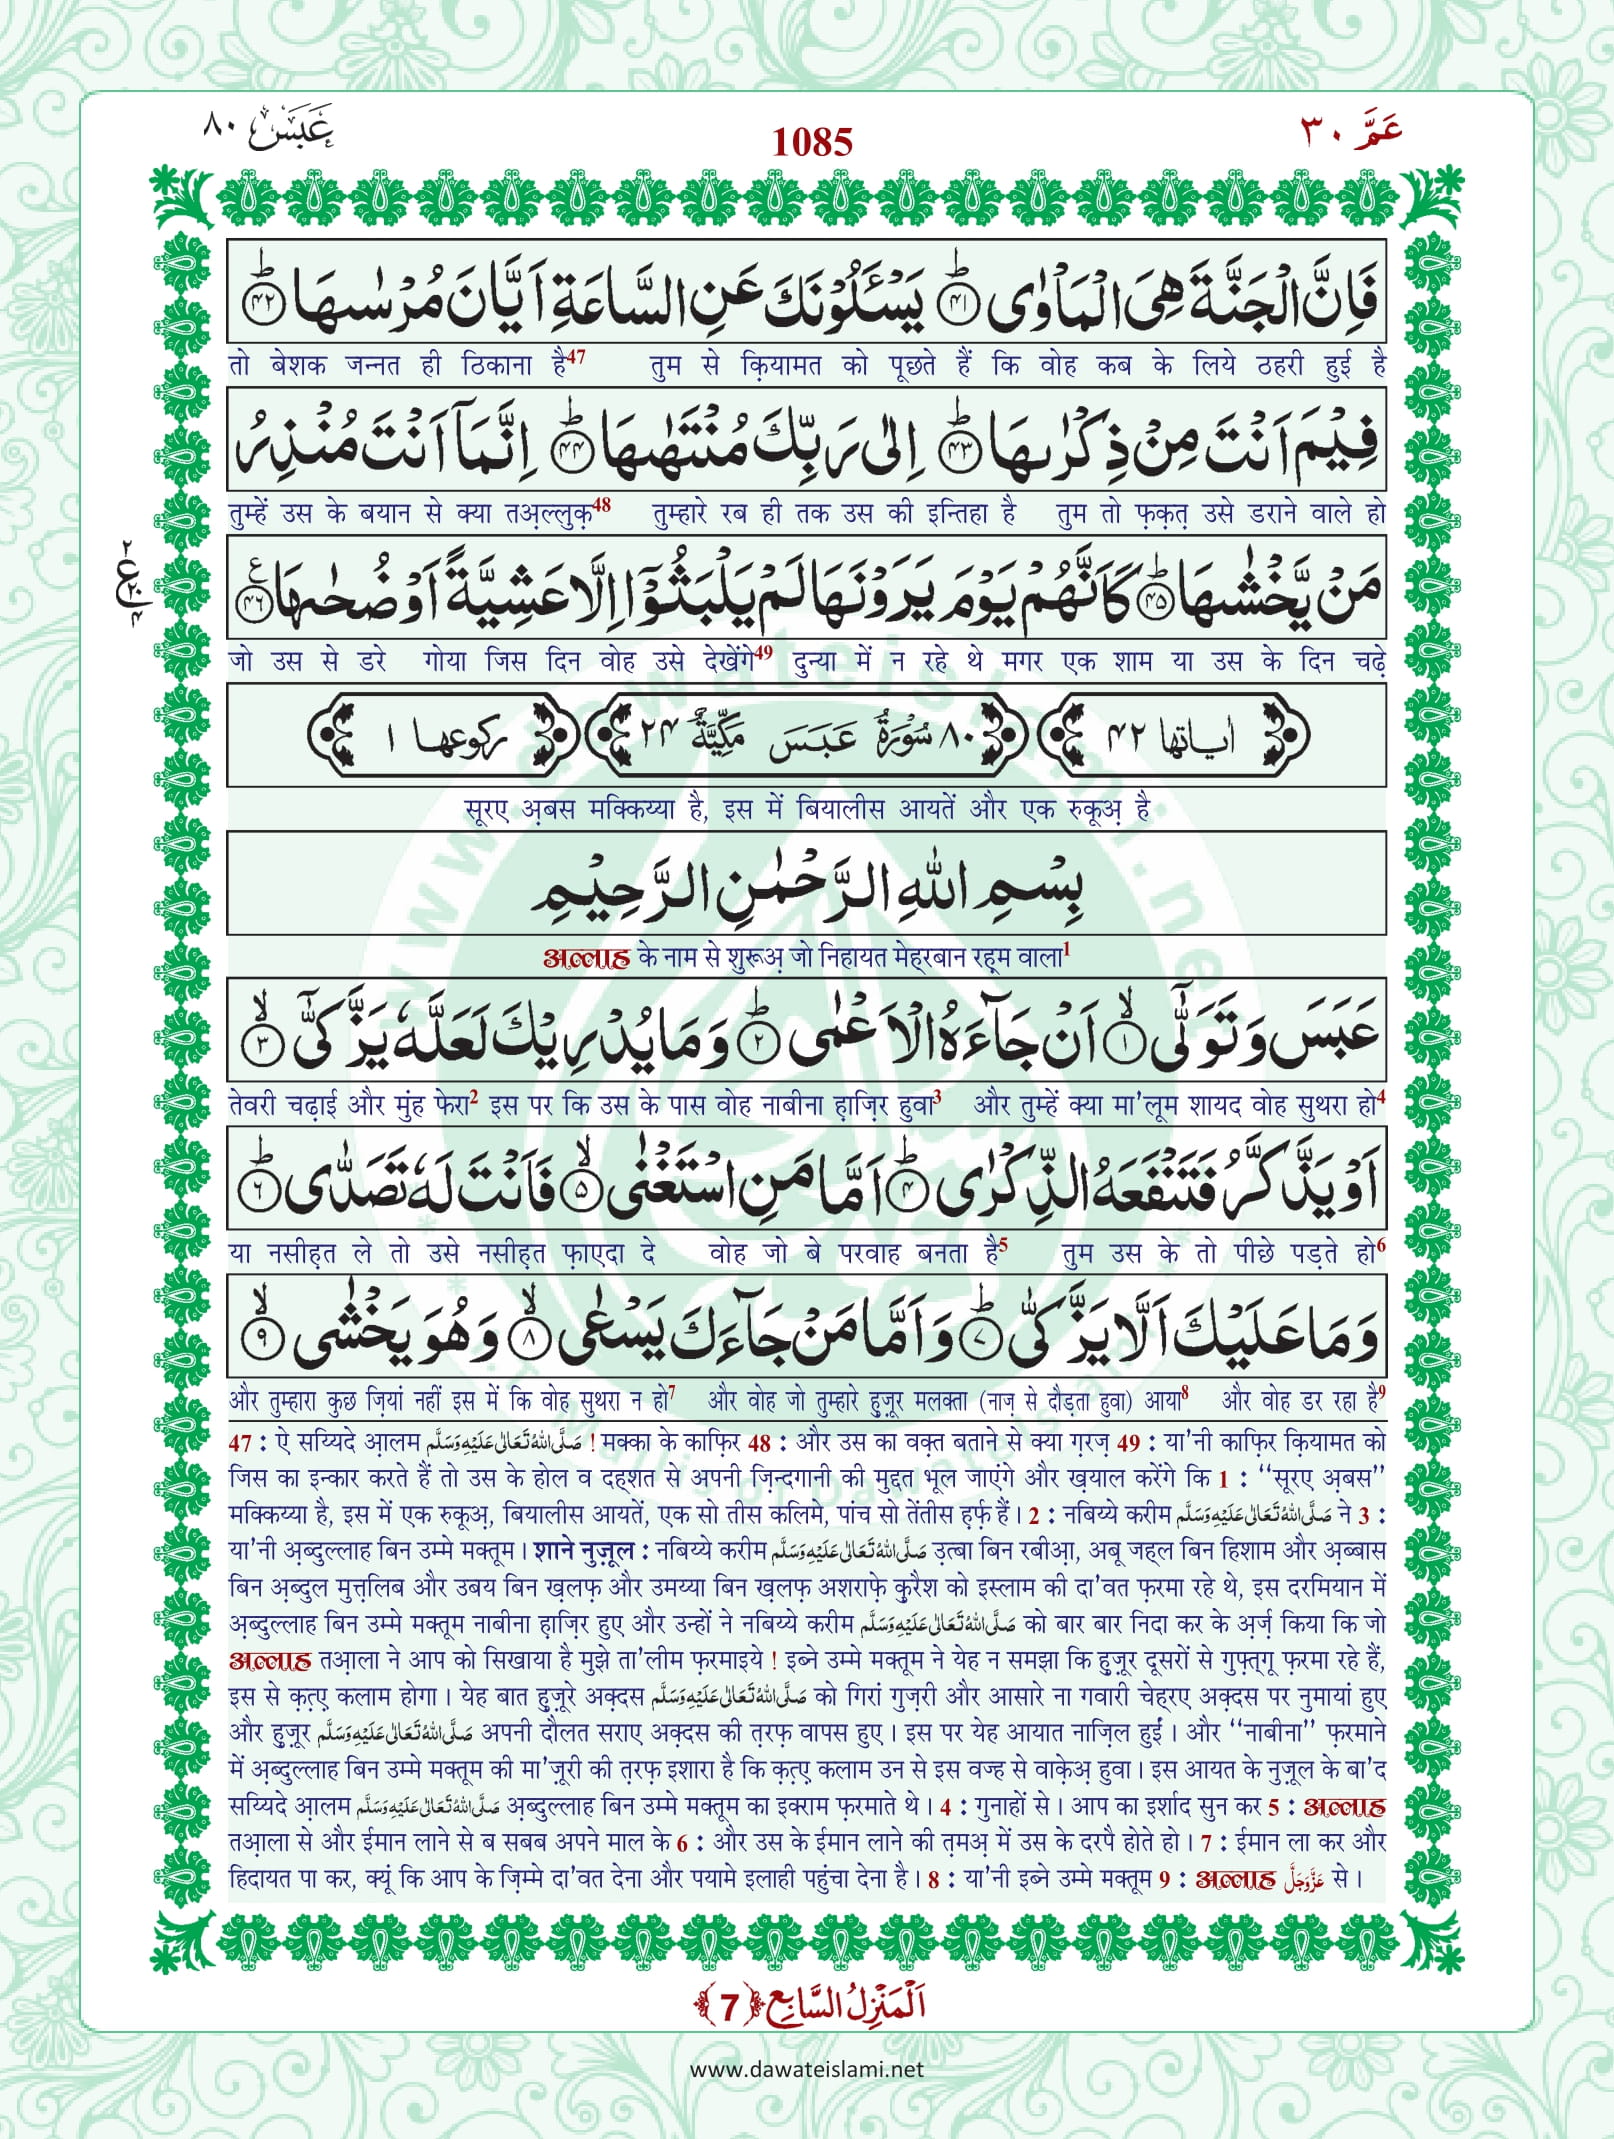 عَمَّ ٣٠
1085
عَبَسَ ٨٠
فَاِنَّ الْجَنَّةَ هِیَ الْمَاْوٰی ﴿۴۱﴾ یَسْـَٔلُوْنَكَ عَنِ السَّاعَةِ اَیَّانَ مُرْسٰىهَا ﴿۴۲﴾
तो बेशक जन्नत ही ठिकाना है47 तुम से क़ियामत को पूछते हैं कि वोह कब के लिये ठहरी हुई है
فِیْمَ اَنْتَ مِنْ ذِكْرٰىهَا ﴿۴۳﴾ اِلٰی رَبِّكَ مُنْتَهٰىهَا ﴿۴۴﴾ اِنَّمَاۤ اَنْتَ مُنْذِرُ
तुम्हें उस के बयान से क्या तअ़ल्लुक़48 तुम्हारे रब ही तक उस की इन्तिहा है तुम तो फ़क़त़ उसे डराने वाले हो
مَنْ یَّخْشٰىهَا ﴿۴۵﴾ كَاَنَّهُمْ یَوْمَ یَرَوْنَهَا لَمْ یَلْبَثُوْۤا اِلَّا عَشِیَّةً اَوْ ضُحٰىهَا ﴿۴۶﴾
जो उस से डरे गोया जिस दिन वोह उसे देखेंगे49 दुन्या में न रहे थे मगर एक शाम या उस के दिन चढ़े
اٰیاتها ۴۲ ۸۰ سُوْرَةُ عَبَسَ مَكِّیَّةٌ ۲۴ ركوعها ۱
सूरए अ़बस मक्किय्या है, इस में बियालीस आयतें और एक रुकूअ़ है
بِسْمِ اللّٰهِ الرَّحْمٰنِ الرَّحِیْمِ
अल्लाह के नाम से शुरूअ़ जो निहायत मेह्‌रबान रह़्म वाला1
عَبَسَ وَ تَوَلّٰۤی ﴿۱﴾ اَنْ جَآءَهُ الْاَعْمٰی ﴿۲﴾ وَ مَا یُدْرِیْكَ لَعَلَّهٗ یَزَّكّٰۤی ﴿۳﴾
तेवरी चढ़ाई और मुंह फेरा2 इस पर कि उस के पास वोह नाबीना ह़ाज़िर हुवा3 और तुम्हें क्या मा'लूम शायद वोह सुथरा हो4
اَوْ یَذَّكَّرُ فَتَنْفَعَهُ الذِّكْرٰی ﴿۴﴾ اَمَّا مَنِ اسْتَغْنٰی ﴿۵﴾ فَاَنْتَ لَهٗ تَصَدّٰی ﴿۶﴾
या नसीह़त ले तो उसे नसीह़त फ़ाएदा दे वोह जो बे परवाह बनता है5 तुम उस के तो पीछे पड़ते हो6
وَ مَا عَلَیْكَ اَلَّا یَزَّكّٰی ﴿۷﴾ وَ اَمَّا مَنْ جَآءَكَ یَسْعٰی ﴿۸﴾ وَ هُوَ یَخْشٰی ﴿۹﴾
और तुम्हारा कुछ ज़ियां नहीं इस में कि वोह सुथरा न हो7 और वोह जो तुम्हारे हुज़ूर मलक्ता (नाज़ से दौड़ता हुवा) आया8 और वोह डर रहा है9
47 : ऐ सय्यिदे आ़लम صَلَّی اللّٰهُ تَعَالٰی عَلَیْهِ وَسَلَّم ! मक्का के काफ़िर 48 : और उस का वक़्त बताने से क्या ग़रज़ 49 : या'नी काफ़िर क़ियामत को
जिस का इन्कार करते हैं तो उस के होल व दह्‌शत से अपनी ज़िन्दगानी की मुद्दत भूल जाएंगे और ख़याल करेंगे कि 1 : ‘‘सूरए अ़बस’’
मक्किय्या है, इस में एक रुकूअ़, बियालीस आयतें, एक सो तीस कलिमे, पांच सो तेंतीस ह़र्फ़ हैं। 2 : नबिय्ये करीम صَلَّی اللّٰهُ تَعَالٰی عَلَیْهِ وَسَلَّم ने 3 :
या'नी अ़ब्दुल्लाह बिन उम्मे मक्तूम। शाने नुज़ूल : नबिय्ये करीम صَلَّی اللّٰهُ تَعَالٰی عَلَیْهِ وَسَلَّم उ़त्बा बिन रबीआ़, अबू जह्‌ल बिन हिशाम और अ़ब्बास
बिन अ़ब्दुल मुत्त़लिब और उबय बिन ख़लफ़ और उमय्या बिन ख़लफ़ अशराफ़े क़ुरैश को इस्लाम की दा'वत फ़रमा रहे थे, इस दरमियान में
अ़ब्दुल्लाह बिन उम्मे मक्तूम नाबीना ह़ाज़िर हुए और उन्हों ने नबिय्ये करीम صَلَّی اللّٰهُ تَعَالٰی عَلَیْهِ وَسَلَّم को बार बार निदा कर के अ़र्ज़ किया कि जो
अल्लाह तआ़ला ने आप को सिखाया है मुझे ता'लीम फ़रमाइये ! इब्ने उम्मे मक्तूम ने येह न समझा कि हुज़ूर दूसरों से गुफ़्तगू फ़रमा रहे हैं,
इस से क़त़्ए कलाम होगा। येह बात हुज़ूरे अक़्दस صَلَّی اللّٰهُ تَعَالٰی عَلَیْهِ وَسَلَّم को गिरां गुज़री और आसारे ना गवारी चेहरए अक़्दस पर नुमायां हुए
और हुज़ूर صَلَّی اللّٰهُ تَعَالٰی عَلَیْهِ وَسَلَّم अपनी दौलत सराए अक़्दस की त़रफ़ वापस हुए। इस पर येह आयात नाज़िल हुईं। और ‘‘नाबीना’’ फ़रमाने
में अ़ब्दुल्लाह बिन उम्मे मक्तूम की मा'ज़ूरी की त़रफ़ इशारा है कि क़त़्ए कलाम उन से इस वज्ह से वाक़ेअ़ हुवा। इस आयत के नुज़ूल के बा'द
सय्यिदे आ़लम صَلَّی اللّٰهُ تَعَالٰی عَلَیْهِ وَسَلَّم अ़ब्दुल्लाह बिन उम्मे मक्तूम का इक्राम फ़रमाते थे। 4 : गुनाहों से। आप का इर्शाद सुन कर 5 : अल्लाह
तआ़ला से और ईमान लाने से ब सबब अपने माल के 6 : और उस के ईमान लाने की त़मअ़ में उस के दरपै होते हो। 7 : ईमान ला कर और
हिदायत पा कर, क्यूं कि आप के ज़िम्मे दा'वत देना और पयामे इलाही पहुंचा देना है। 8 : या'नी इब्ने उम्मे मक्तूम 9 : अल्लाह عَزَّوَجَلَّ से।
اَلْمَنْزِلُ السَّابِع ﴿7﴾
www.dawateislami.net